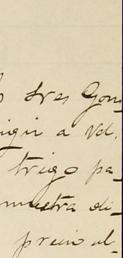 Sres Gon
igir a Vd.
trigo pa_
muestra di_
precio al_